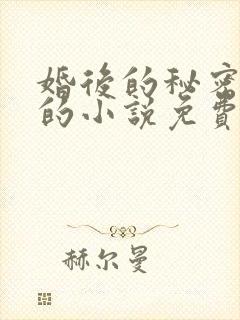 婚後的秘密
的小說免費
赫尔曼